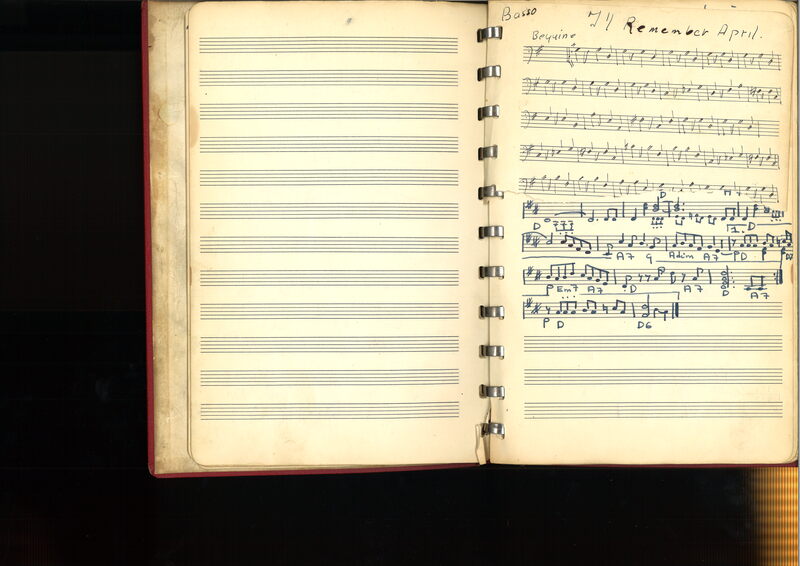 Basso
I'll Remember April.
Beguine
D A7
D 1. D
A7 G Adim A7 D
Em7 A7 D A7 D A7
D D6